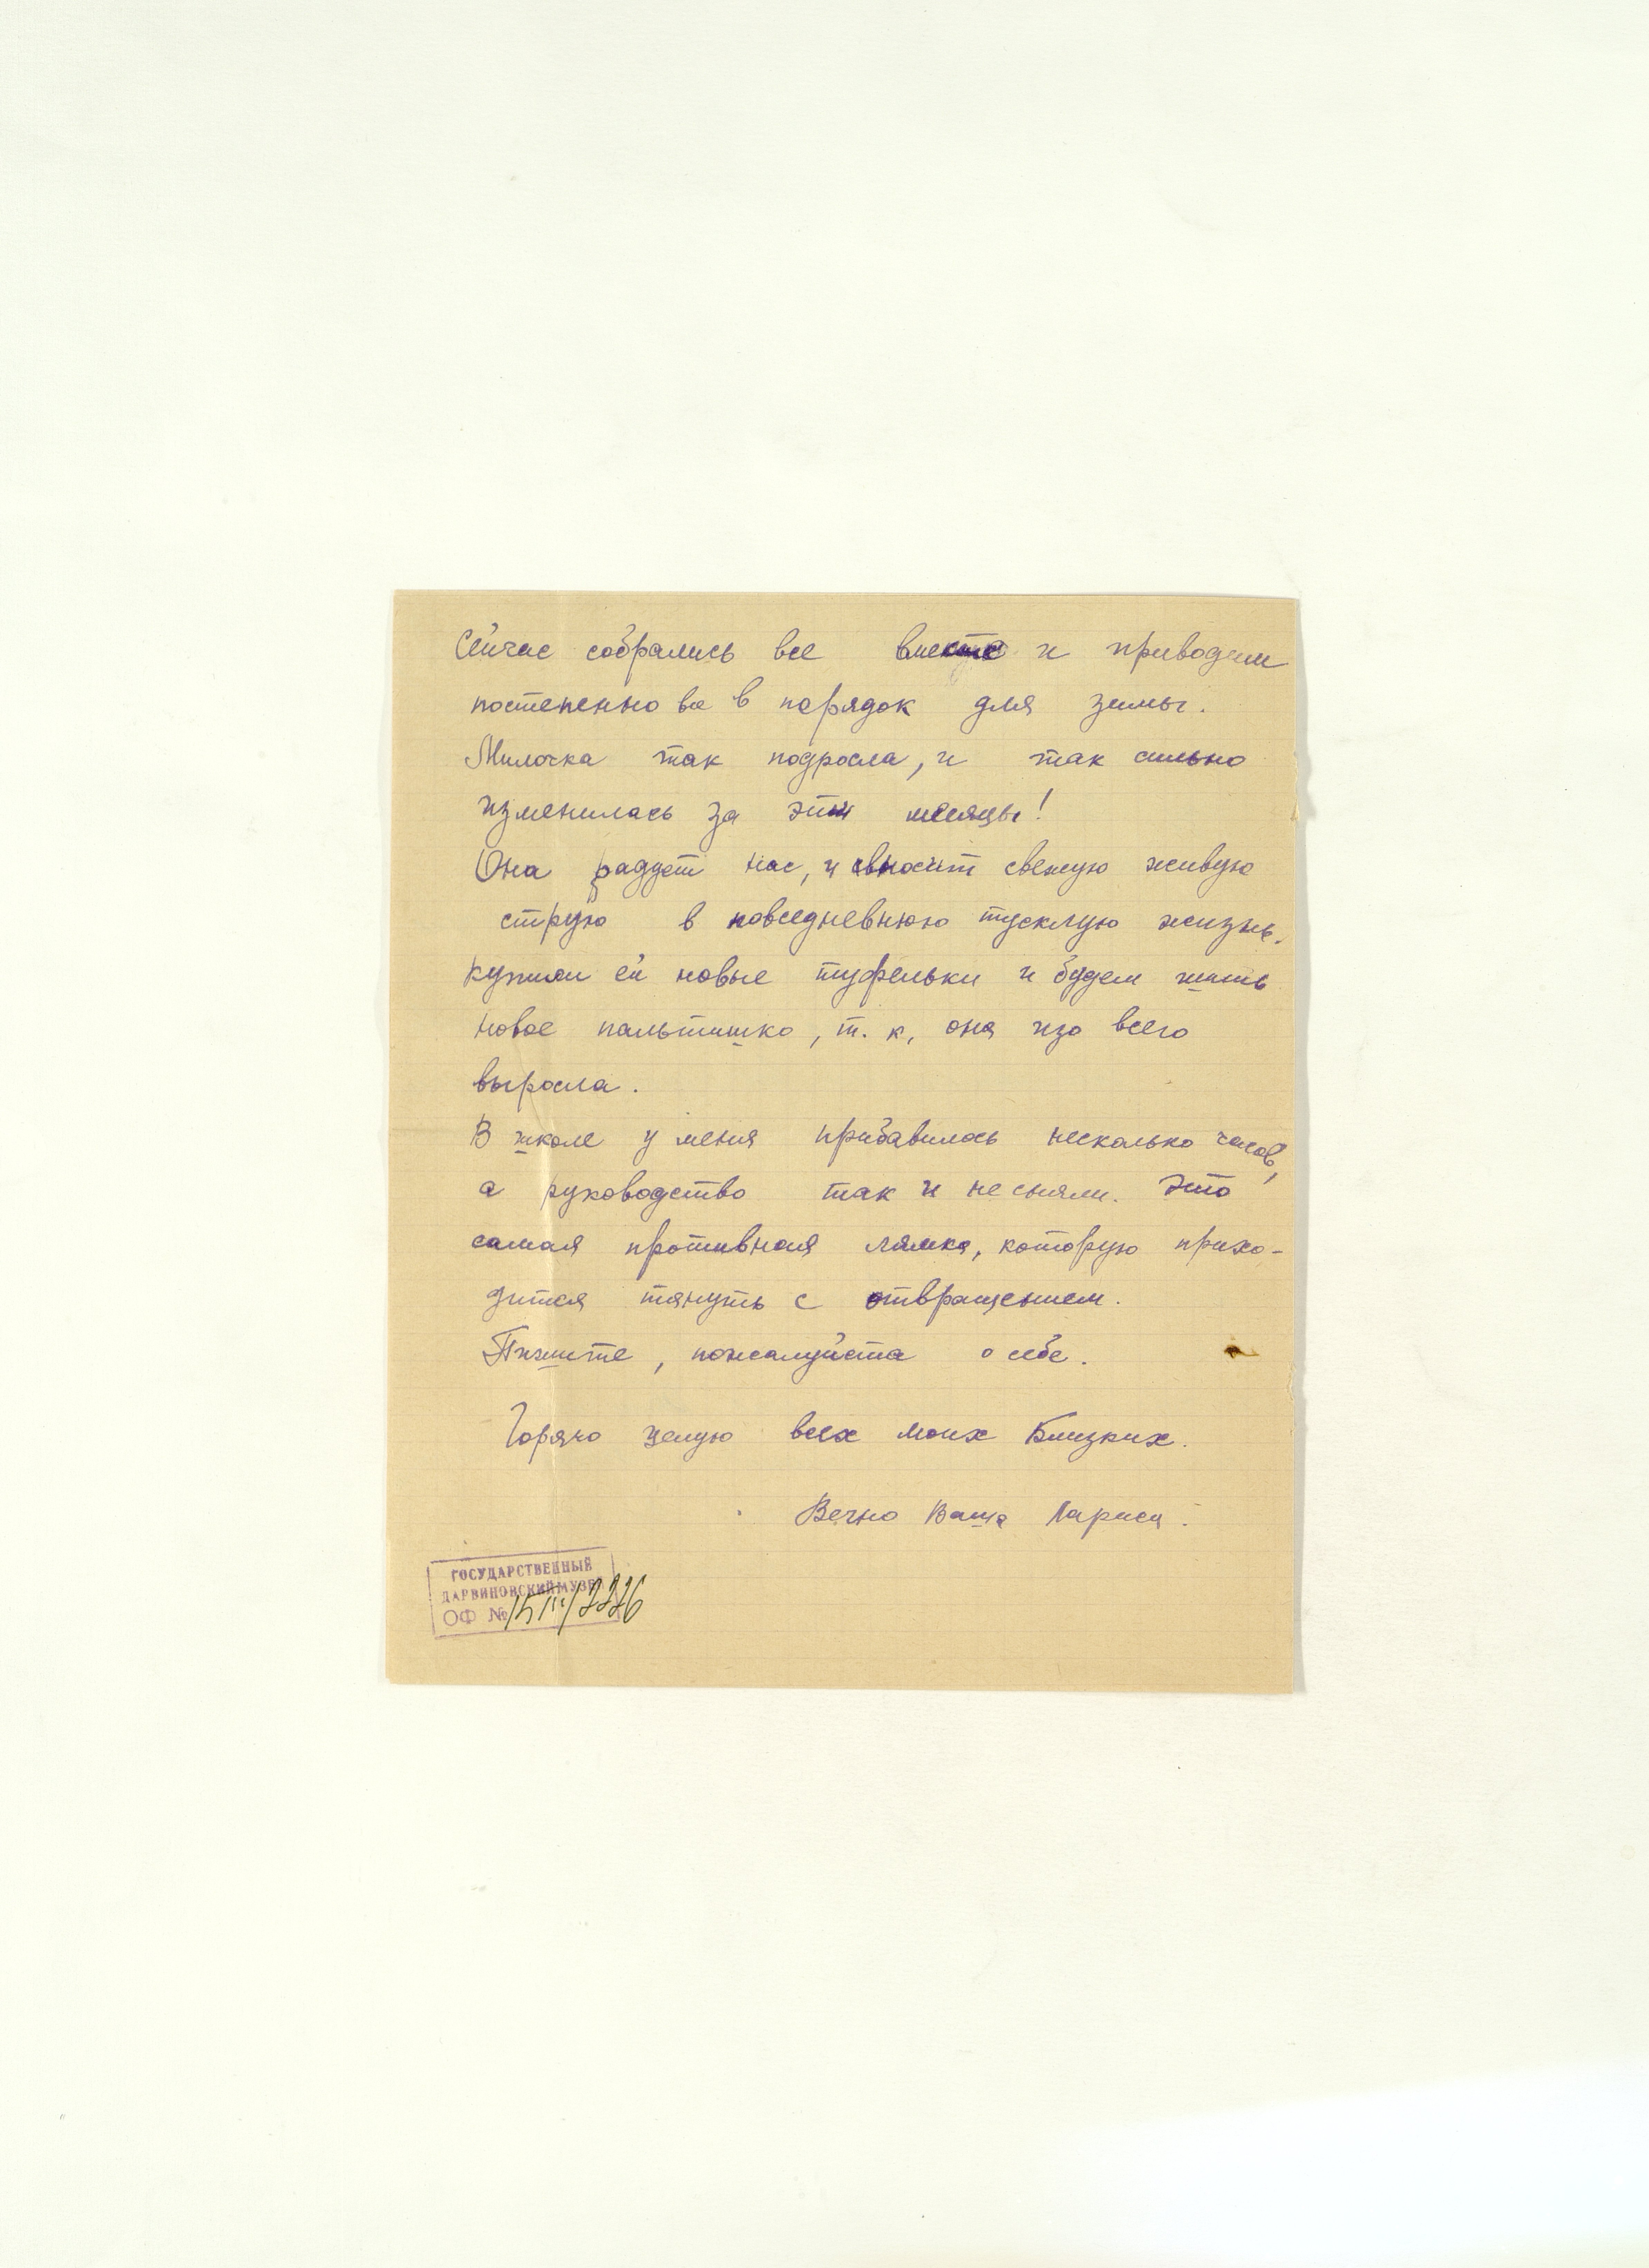 Сейчас собрались все вместе и приводим
постепенно все в порядок для зимы.
Милочка так подросла, и так сильно
изменилась за эти месяцы!
Она радует нас, и вносит свежую живую
струю в повседневную тусклую жизнь.
Купили ей новые туфельки и будем шить
новое пальтишко, т. к. она изо всего
выросла.
В школе у меня прибавилось несколько часов,
а руководство так и не сняли. Это
самая противная лямка, которую прихо-
дится тянуть с отвращением.
Пишите, пожалуйста о себе.
Горячо целую всех моих Близких.
Вечно Ваша Лариса.
ГОСУДАРСТВЕННЫЙ
ДАРВИНОВСКИЙ МУЗЕЙ
ОФ №